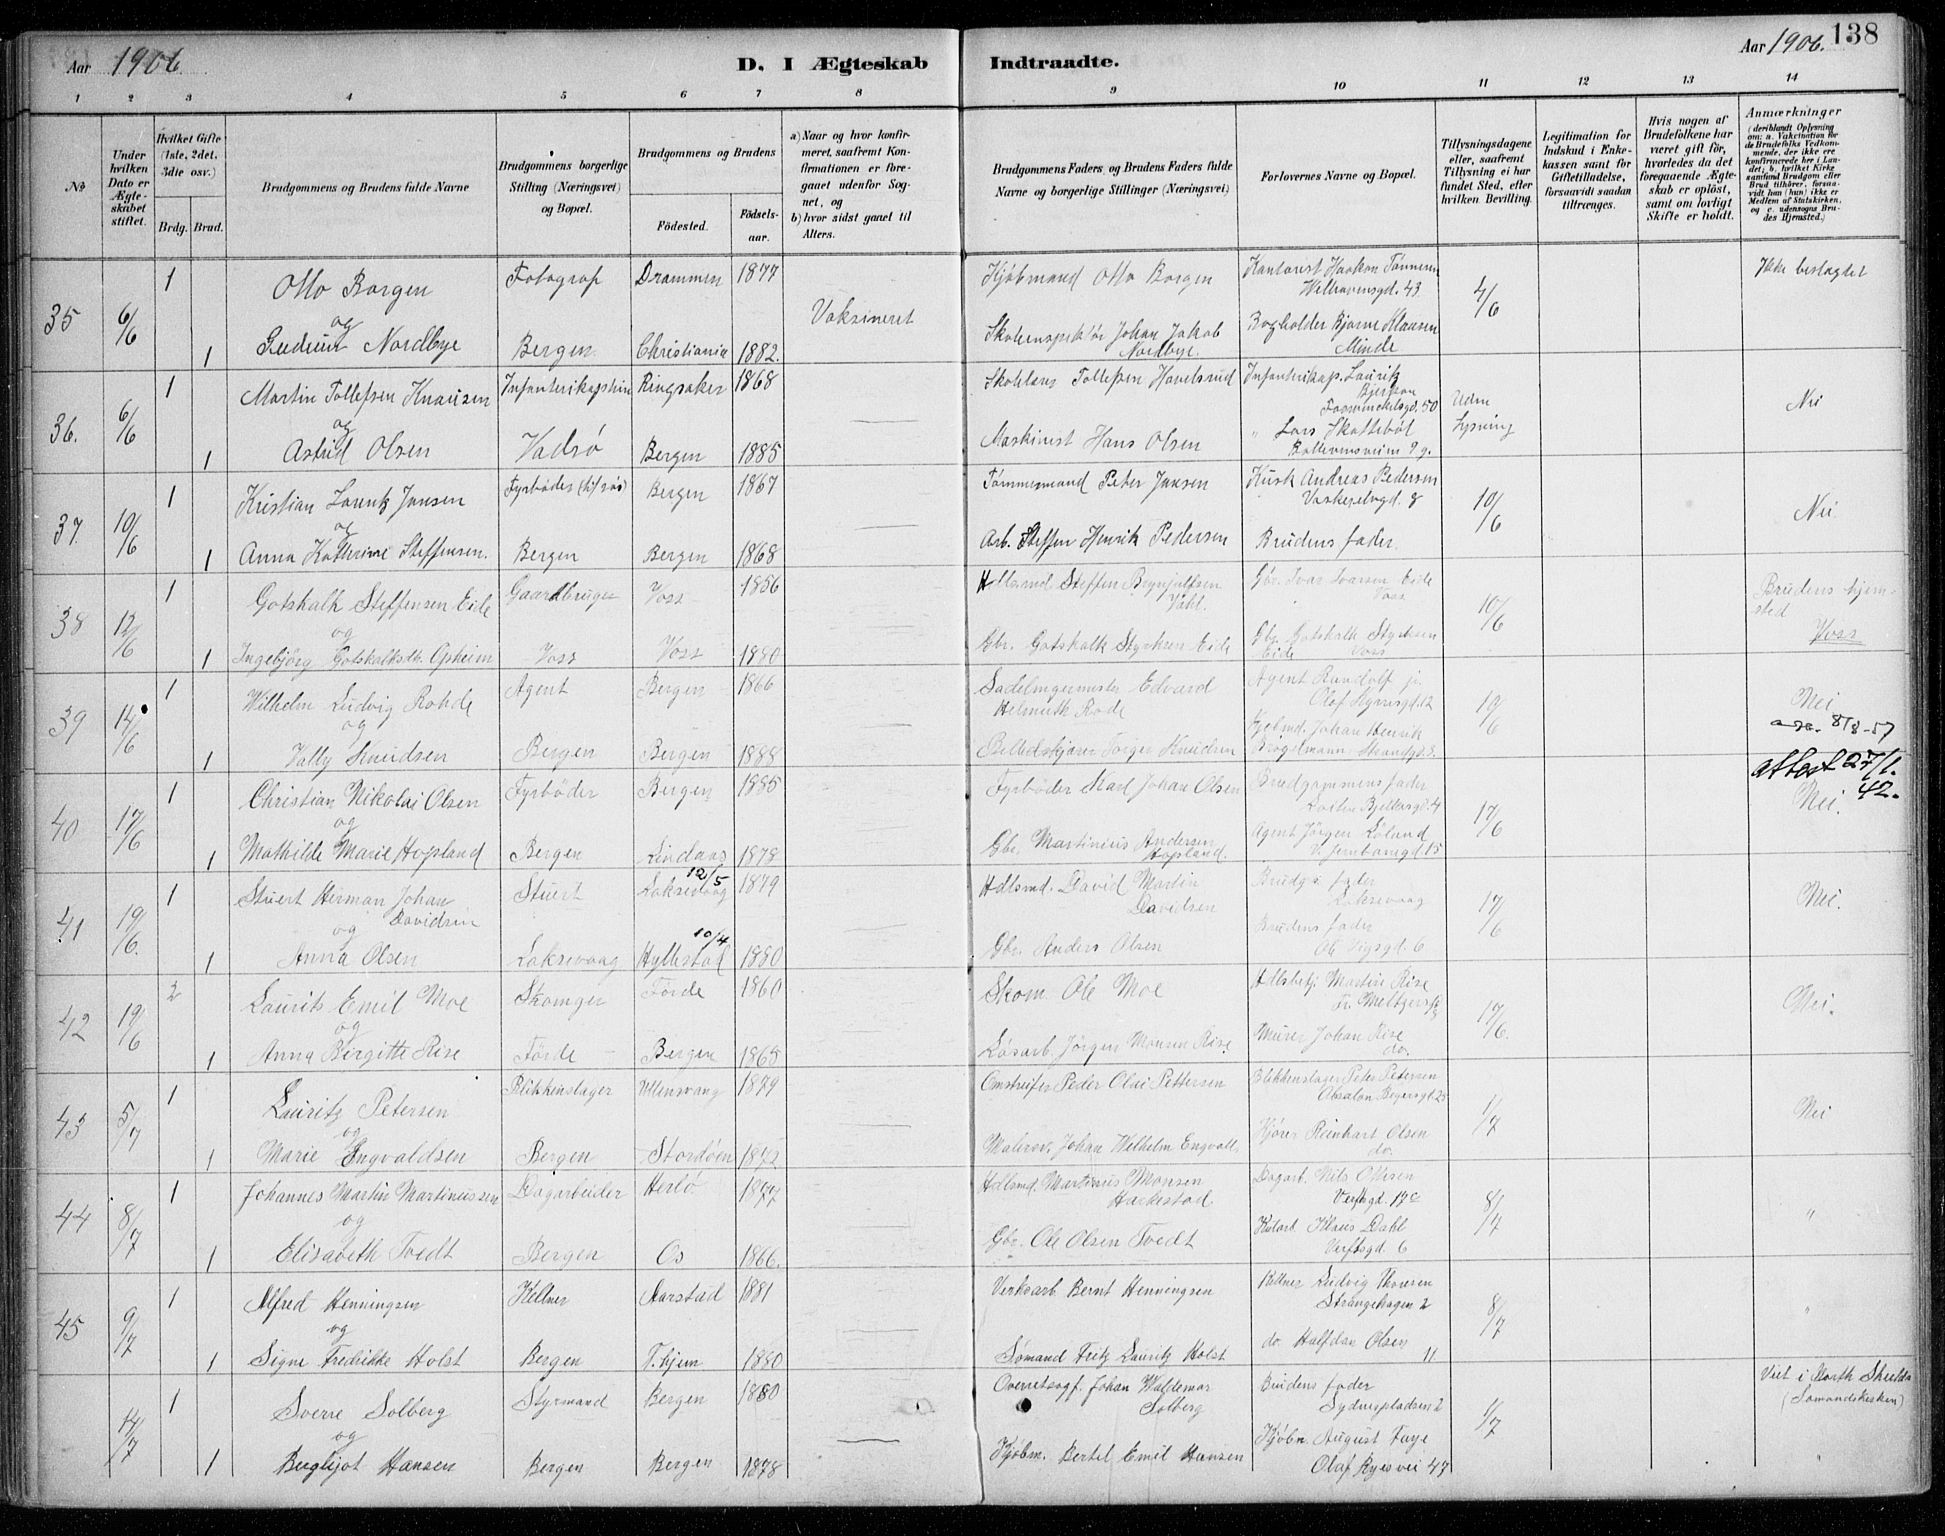 Aar 1906
D. I Ægteskab Indtraadte.
Aar 1906. 138
1 2 3 4 5 6 7 8 9 10 11 12 13 14
No
Under hvilken Dato er Ægteskabet stiftet.
Hvilket Gifte (1ste, 2det, 3die osv.)
Brdg. Brud.
Brudgommens og Brudens fulde Navne
Brudgommens borgerlige Stilling (Næringsvei) og Bopæl.
Brudgommens og Brudens
Fødested.
Fødsels-aar.
a) Naar og hvor konfirmeret, saafremt Konfirmationen er foregaaet udenfor Sognet, og
b) hvor sidst gaaet til Alters.
Brudgommens Faders og Brudens Faders fulde Navne og borgerlige Stillinger (Næringsvei)
Forlovernes Navne og Bopæl.
Tillysningsdagene eller, saafremt Tillysning ei har fundet Sted, efter hvilken Bevilling.
Legitimation for Indskud i Enkekassen samt for Giftetilladelse, forsaavidt saadan tiltrænges.
Hvis nogen af Brudefolkene har været gift før, hvorledes da det foregaaende Ægteskab er opløst, samt om lovligt Skifte er holdt.
Anmærkninger
(deriblandt Oplysning om: a. Vakcination for de Brudefolks Vedkommende, der ikke ere konfirmerede her i Landet; b. hvilket Kirkesamfund Brudgom eller Brud tilhører, forsaavidt han (hun) ikke er Medlem af Statskirken, og c. udensogns Brudes Hjemsted.)
35 6/6 1 Otto Borgen Fotograf Drammen 1877 Kjøbmand Otto Borgen Kontorist Haakon Welhavensgd. 43 4/6 Ikke beslægtet
og Vaksineret
1 Gudrun Nordbye Bergen Christiania 1882. Skoleinspektør Johan Jakob Nordbye. Bogholder Bjarne Klausen Minde
36. 6/6 1 Martin Tollefsen Knausen Infanterikaptein Ringsaker 1868 Tollefsen Infanterikap. Lauritz 50 Uden Lysning Nei
og
1 Astrid Olsen Vadsø Bergen 1885 Maskinist Hans Olsen " Lars 9 g.
37. 10/6 1 Kristian Lauritz Jansen Fyrbøder Bergen 1867 Tømmermand Peter Jansen Kusk Andreas Pedersen 8 10/6 Nei
og
1 Anna Kathrine Steffensen. Bergen Bergen 1868 Arb. Steffen Henrik Pedersen Brudens fader.
38 12/6 1 Gotskalk Steffensen Eide Gaardbruger Voss 1856 Hdlsmd Steffen Brynjulfsen Gbr. Ivar Ivarsen Eide Voss 10/6 Brudens hjemsted Voss
og
1 Ingebjörg Gotskalksdt. Opheim Voss Voss 1880 Gbr. Gotskalk Styrksen Eide Gbr. Gotskalk Styrksen Eide Voss
39 14/6 1 Wilhelm Ludvig Rohde Agent Bergen 1866 Sadelmagermester Edvard Helmuth Rode Agent Randolf jr. Olaf Kyrresgd. 12 10/6 Nei
og 8/8-57
1 Vally Knudsen Bergen Bergen 1888 Billedskjærer Torger Knudsen Kjøbmd. Johan Henrik Brögelmann Strandgd. 3.
attest 27/1. 42.
40 17/6 1 Christian Nikolai Olsen Fyrbøder Bergen 1885 Fyrbøder Karl Johan Olsen Brudgommens fader 4 17/6 Nei.
og
1 Mathilde Marie Hopland Bergen Lindaas 1878 Gbr. Martinius Andersen Hopland. Agent Jörgen Löland 15
41 19/6. 1 Stuert Herman Johan Davidsen Stuert 12/5 Laksevaag 1879 Hdlsmd. David Martin Davidsen Brudgs fader Laksevaag 17/6 Nei.
og
1 Anna Olsen Laksevaag 10/4 Hyllestad 1880 Gbr. Anders Olsen Brudens fader Ole Vigsgd. 6
42 19/6 2 Laurits Emil Moe Skomager Förde 1860 Skom. Ole Moe Martin Rise 17/6. Nei.
og
1 Anna Birgitte Rise Förde Bergen 1865 Løsarb. Jörgen Monsen Rise Murer Johan Rise do.
43 5/7 1 Lauritz Petersen Blikkenslager Ullensvang 1879 Omstreifer Peder Olai Pettersen Blikkenslager Peter Petersen Absalon Beyersgd. 25 1/7 Nei
og
1 Marie Engvaldsen Bergen Stordöen 1872 Malersv. Johan Wilhelm Engvall Kjører Reinhart Olsen do.
44 8/7 1 Johannes Martin Martinussen Dagarbeider Herlö 1877 Hdlsmd. Martinus Monsen Dagarb. Nils Olsen Verftsgd. 17c 8/7 "
og
1 Elisabeth Tvedt Bergen Os 1866. Gbr. Ole Olsen Tvedt Kularb Klaus Dahl Verftsgd. 6
45 9/7 1 Alfred Henningsen Kellner Aarstad 1881 Verksarb Bernt Henningsen Kellner Ludvig Thoresen Strangehagen 2 8/7 "
og
1 Signe Fredrikke Holst Bergen T.hjem 1880 Sømand Fritz Lauritz Holst do Halfdan Olsen 11
14/7 1 Sverre Solberg Styrmand Bergen 1880 Overretssagf. Johan Waldemar Solberg Brudens fader Sydnespladsen 2 1/7 Viet i North Shields (Sømandskirken)
og
1 Bergljot Hansen Bergen Bergen 1878 Kjøbm. Bertel Emil Hansen Kjøbm. August Faye Olaf Ryesvei 47